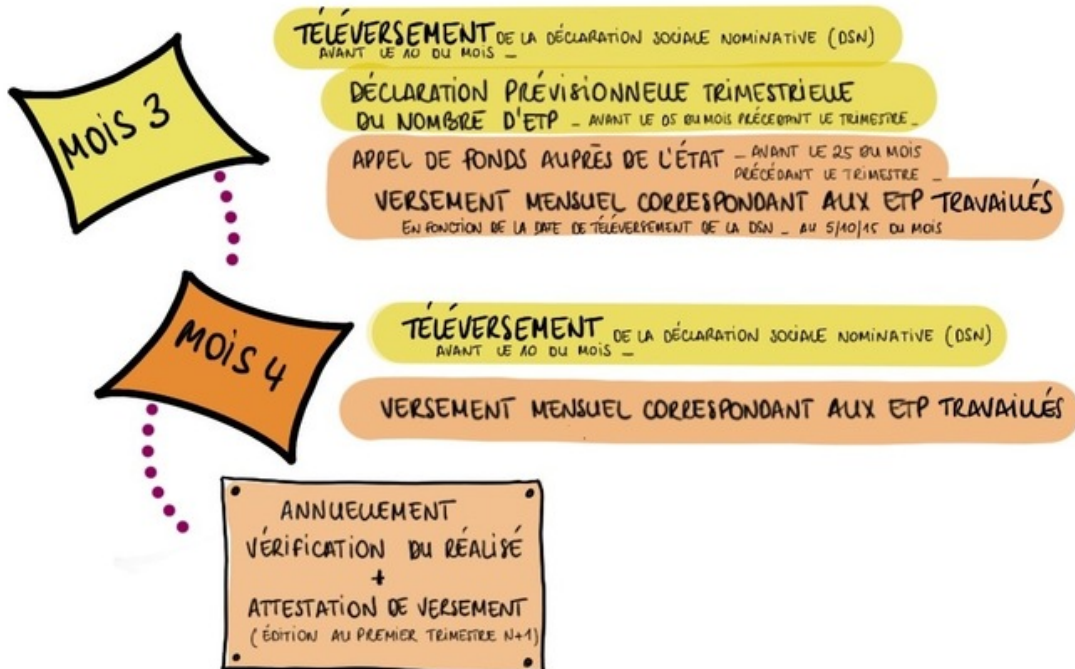 MOIS 3
TÉLÉVERSEMENT DE LA DÉCLARATION SOCIALE NOMINATIVE (DSN)
AVANT LE 10 DU MOIS _
DÉCLARATION PRÉVISIONNELLE TRIMESTRIELLE
DU NOMBRE D'ETP _ AVANT LE 05 DU MOIS PRÉCÉDANT LE TRIMESTRE _
APPEL DE FONDS AUPRÈS DE L'ÉTAT _ AVANT LE 25 DU MOIS
PRÉCÉDANT LE TRIMESTRE _
VERSEMENT MENSUEL CORRESPONDANT AUX ETP TRAVAILLÉS
EN FONCTION DE LA DATE DE TÉLÉVERSEMENT DE LA DSN _ AU 5/10/15 DU MOIS
MOIS 4
TÉLÉVERSEMENT DE LA DÉCLARATION SOCIALE NOMINATIVE (DSN)
AVANT LE 10 DU MOIS _
VERSEMENT MENSUEL CORRESPONDANT AUX ETP TRAVAILLÉS
ANNUELLEMENT
VÉRIFICATION DU RÉALISÉ
+
ATTESTATION DE VERSEMENT
(ÉDITION AU PREMIER TRIMESTRE N+1)